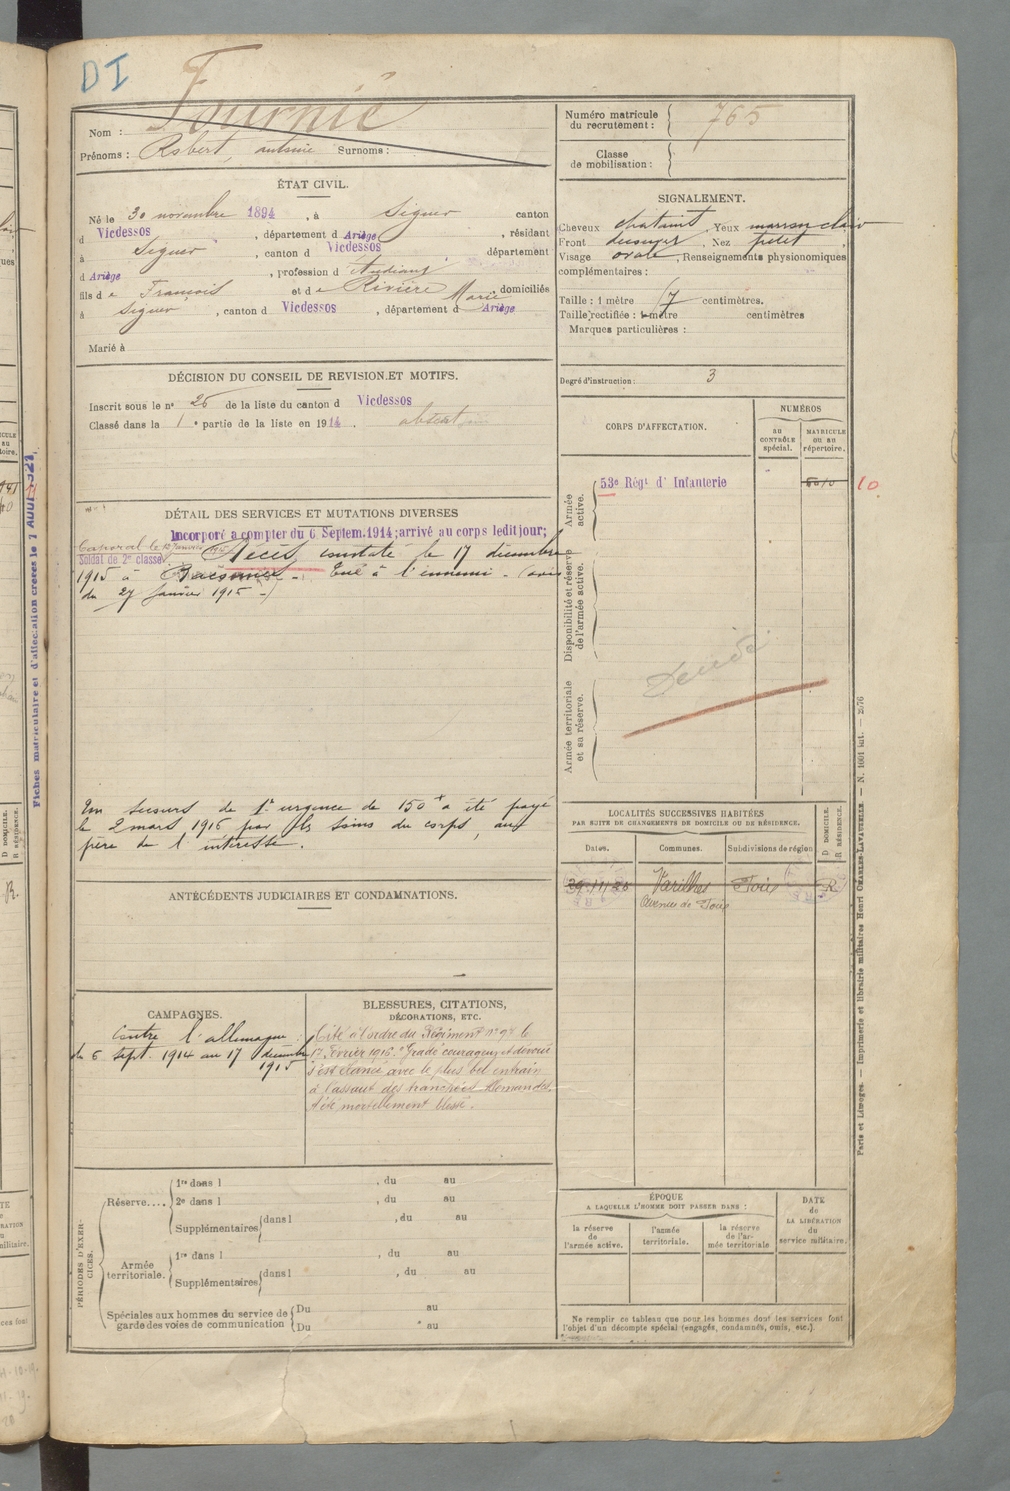 DI
Fournié
Nom :
Prénoms : Robert, antoine Surnoms :
Numéro matricule du recrutement : 765
Classe de mobilisation :
ÉTAT CIVIL.
Né le 30 novembre 1894, à Siguer canton
d Vicdessos, département d Ariège, résidant
à Siguer, canton d Vicdessos département
d Ariège, profession d étudiant
fils de François et de Rivière Marie, domiciliés
à Siguer, canton d Vicdessos, département d Ariège
Marié à
SIGNALEMENT.
Cheveux chatains, Yeux marron clair
Front, Nez petit,
Visage ovale, Renseignements physionomiques
complémentaires :
Taille : 1 mètre 67 centimètres.
Taille rectifiée : 1 mètre centimètres
Marques particulières :
Degré d'instruction : 3
DÉCISION DU CONSEIL DE REVISION ET MOTIFS.
Inscrit sous le n° 26 de la liste du canton d Vicdessos
Classé dans la 1e partie de la liste en 1914. absent
CORPS D'AFFECTATION.
NUMÉROS
au CONTRÔLE spécial.
MATRICULE ou au répertoire.
Armée active.
53e Régt d' Infanterie
10.
Disponibilité et réserve de l'armée active.
Armée territoriale et sa réserve.
Décédé
DÉTAIL DES SERVICES ET MUTATIONS DIVERSES
Incorporé a compter du 6 Septem. 1914; arrivé au corps ledit jour;
Soldat de 2e classe
Caporal le
Décès constaté le 17 décembre
1915 à. Tué à l'ennemi - (avis
du 27 janvier 1915 -)
Un secours de 1re urgence de 150 f a été payé
le 2 mars 1916 par les soins du corps, au
père de l'intéressé.
LOCALITÉS SUCCESSIVES HABITÉES
PAR SUITE DE CHANGEMENTS DE DOMICILE OU DE RÉSIDENCE.
Dates.
Communes.
Subdivisions de région
D DOMICILE.
R RÉSIDENCE.
Varilhes Foix R
Avenue de Foix
ANTÉCÉDENTS JUDICIAIRES ET CONDAMNATIONS.
CAMPAGNES.
Contre l'allemagne :
du 6 sept. 1914 au 17 décembre
1915
BLESSURES, CITATIONS,
DÉCORATIONS, ETC.
Cité à l'ordre du Régiment n° 9 le
17 Février 1916. "Gradé courageux et dévoué
s'est élancé avec le plus bel entrain
à l'assaut des tranchées allemandes.
A été mortellement blessé.
PÉRIODES D'EXERCICES.
Réserve....
1re dans l, du au
2e dans l, du au
Supplémentaires dans l, du au
Armée territoriale.
1re dans l, du au
Supplémentaires dans l, du au
Spéciales aux hommes du service de garde des voies de communication
Du au
Du au
ÉPOQUE
A LAQUELLE L'HOMME DOIT PASSER DANS :
la réserve de l'armée active.
l'armée territoriale.
la réserve de l'armée territoriale
DATE de LA LIBÉRATION du service militaire.
Ne remplir ce tableau que pour les hommes dont les services font
l'objet d'un décompte spécial (engagés, condamnés, omis, etc.).
Paris et Limoges. — Imprimerie et librairie militaires Henri CHARLES-LAVAUZELLE. — N. 1001 int. — 2676
Fiches matriculaire et d'affectation créées le 7 AOUT 1921